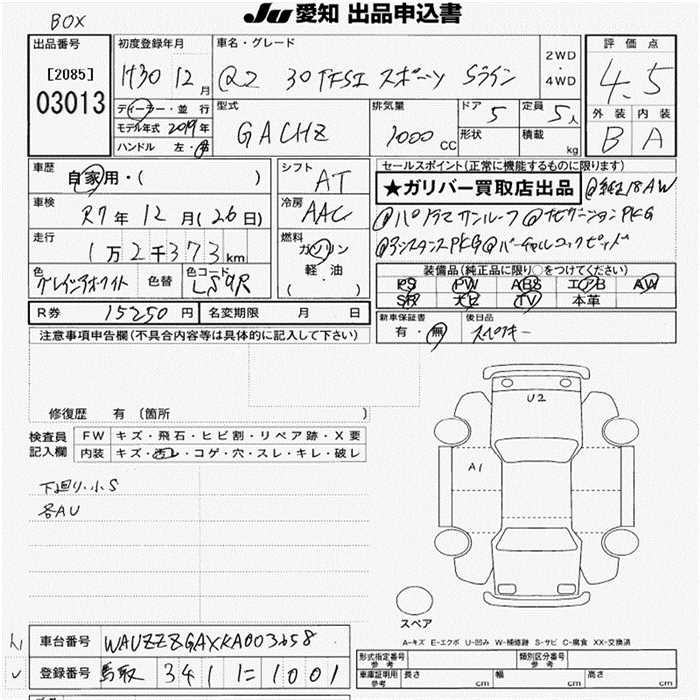 BOX
JU 愛知 出品申込書
出品番号
[2085]
03013
初度登録年月
H30年12月
車名・グレード
Q2 30TFSI スポーツ Sライン
2WD
4WD
評価点
4.5
外装 内装
B A
ディーラー・並行
モデル年式 2019年
ハンドル 左・右
型式
GACHZ
排気量
1000cc
ドア
5
定員
5人
形状
積載
kg
車歴
自家用・( )
車検
R7年12月(26日)
走行
1万2千373km
色
グレイシアホワイト
色替
色コード
LS9R
シフト
AT
冷房
AAC
燃料
ガソリン
軽・油
( ・ )
セールスポイント(正常に機能するものに限ります)
★ガリバー買取店出品
純正18AW
パノラマサンルーフ ナビゲーションPKG
アシスタンスPKG バーチャルコックピット
装備品(純正品に限り○をつけてください)
PS PW ABS エアB AW
SR ナビ TV 本革
R券 15250円
名変期限 月 日
新車保証書
有・無
後日品
スペアキー
注意事項申告欄(不具合内容等は具体的に記入して下さい)
修復歴 有〔箇所 〕
検査員
記入欄
FW キズ・飛石・ヒビ割・リペア跡・X要
内装 キズ・汚レ・コゲ・穴・スレ・キレ・破レ
下廻り小S
各AU
U2
A1
スペア
A-キズ E-エクボ U-凹み W-補修跡 S-サビ C-腐食 XX-交換済
車台番号 WAUZZZGAXKA003658
登録番号 鳥取 341 に 1001
形式指定番号
参考
類別区分番号
参考
車庫証明用
参考
長さ cm
幅 cm
高さ cm